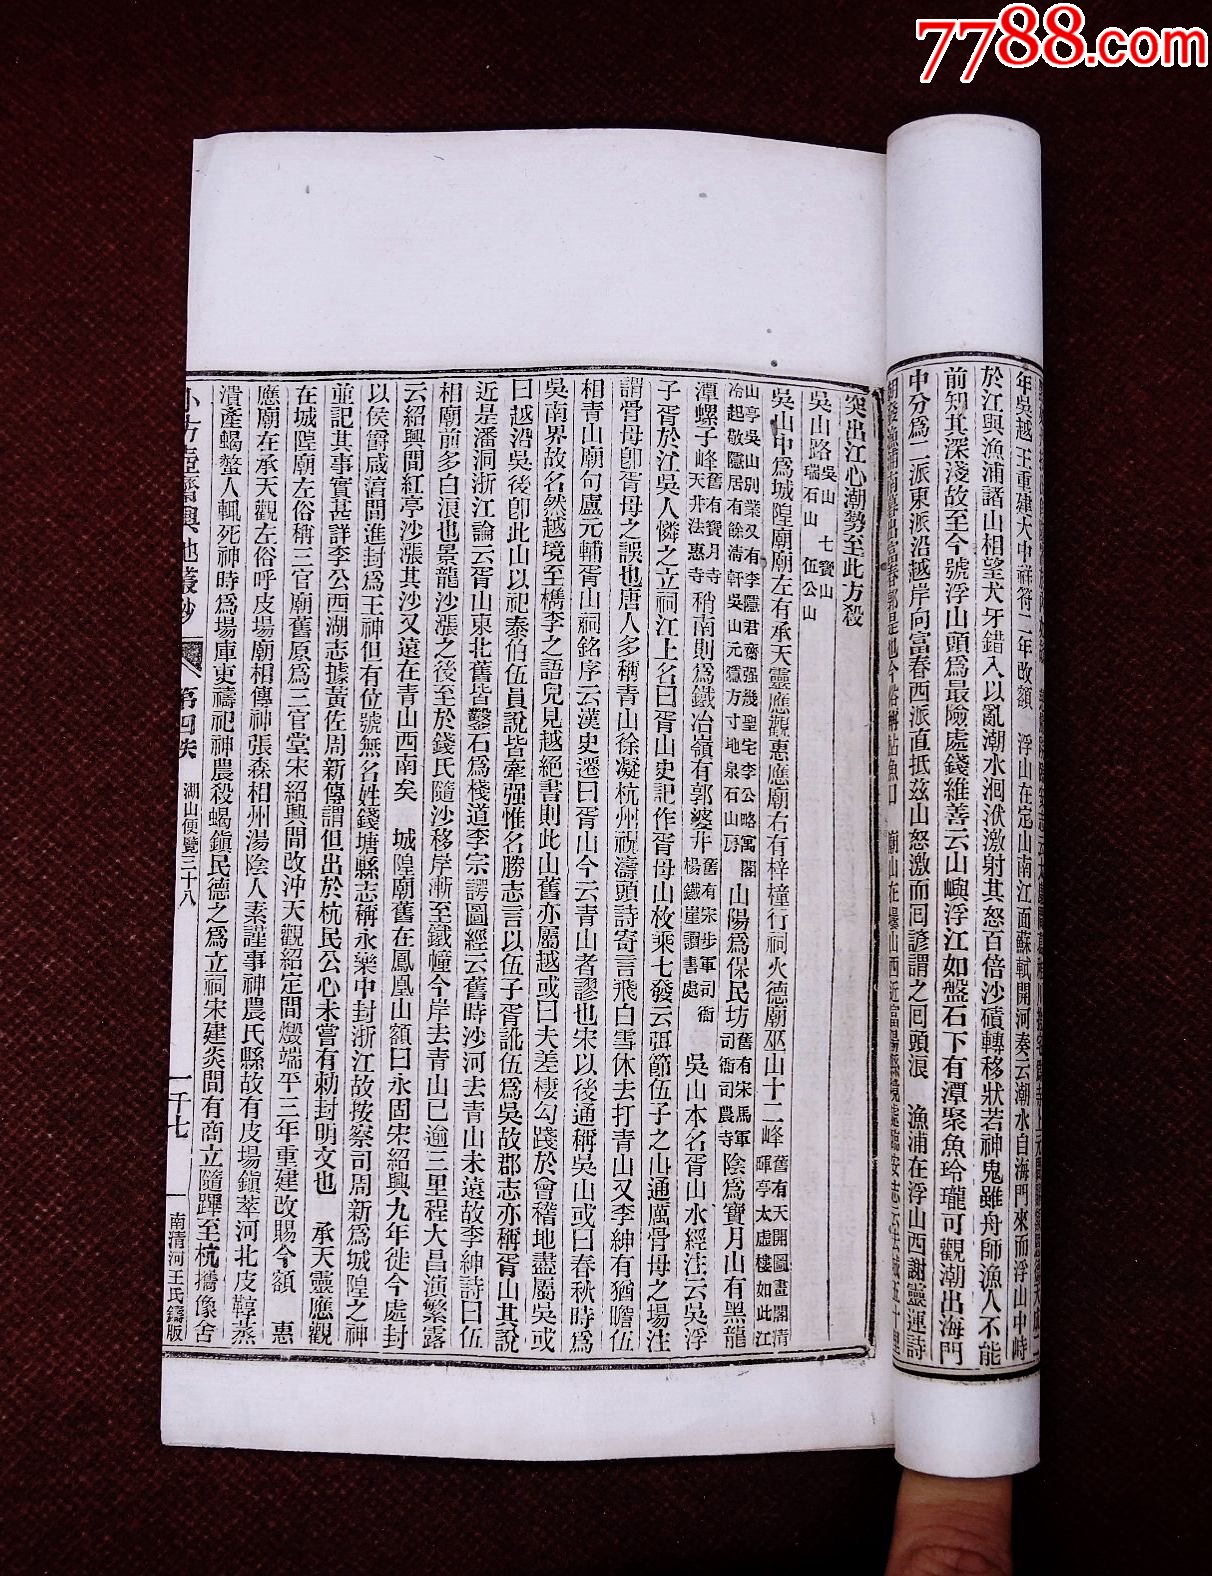 7788.com
年吳越王重建大中祥符二年改額 浮山在定山南江面蘇軾開河奏云潮水自海門來而浮山中峙
於江與漁浦諸山相望犬牙錯入以亂潮水洄洑激射其怒百倍沙磧轉移狀若神鬼雖舟師漁人不能
前知其深淺故至今號浮山頭爲最險處錢維善云山嶼浮江如盤石下有潭聚魚玲瓏可觀潮出海門
中分爲二派東派沿越岸向富春西派直抵玆山怒激而囘諺謂之囘頭浪 漁浦在浮山西謝靈運詩
突出江心潮勢至此方殺
吳山路吳山 七寶山瑞石山 伍公山
吳山中爲城隍廟廟左有承天靈應觀惠應廟右有梓橦行祠火德廟巫山十二峰舊有天開圖畫閣淸暉亭太虛樓如此江
山亭吳山別業又有李隱君齋强幾聖宅李公略寓閣冷起敬隱居有餘淸軒吳山元穩方寸地泉石山房 山陽爲保民坊舊有宋馬軍司衙司農寺陰爲寶月山有黑龍
潭螺子峰舊有寶月寺天井法惠寺 稍南則爲鐵冶嶺有郭婆井舊有宋步軍司衙楊鐵崖讀書處 吳山本名胥山水經注云吳浮
子胥於江吳人憐之立祠江上名曰胥山史記作胥母山枚乘七發云弭節伍子之山通厲骨母之場注
謂骨母卽胥母之誤也唐人多稱青山徐凝杭州祝濤頭詩寄言飛白雪休去打青山又李紳有猶瞻伍
相青山廟句盧元輔胥山祠銘序云漢史遷曰胥山今云青山者謬也宋以後通稱吳山或曰春秋時爲
吳南界故名然越境至檇李之語兒見越絕書則此山舊亦屬越或曰夫差棲勾踐於會稽地盡屬吳或
曰越沼吳後卽此山以祀泰伯伍員說皆牽强惟名勝志言以伍子胥訛伍爲吳故郡志亦稱胥山其說
近是潘洞浙江論云胥山東北舊皆鑿石爲棧道李宗諤圖經云舊時沙河去青山未遠故李紳詩曰伍
相廟前多白浪也景龍沙漲之後至於錢氏隨沙移岸漸至鐵幢今岸去青山已逾三里程大昌演繁露
云紹興間紅亭沙漲其沙又遠在青山西南矣 城隍廟舊在鳳凰山額曰永固宋紹興九年徙今處封
以侯爵咸淳間進封爲王神但有位號無名姓錢塘縣志稱永樂中封浙江故按察司周新爲城隍之神
並記其事實甚詳李公西湖志據黃佐周新傳謂但出於杭民公心未嘗有勅封明文也 承天靈應觀
在城隍廟左俗稱三官廟舊原爲三官堂宋紹興間改沖天觀紹定間燬端平三年重建改賜今額 惠
應廟在承天觀左俗呼皮場廟相傳神張森相州湯陰人素謹事神農氏縣故有皮場鎭萃河北皮鞟蒸
潰產蝎螫人輒死神時爲場庫吏禱祀神農殺蝎鎭民德之爲立祠宋建炎間有商立隨蹕至杭攜像舍
小方壺齋輿地叢鈔 第四帙 湖山便覽三十八 一千七 南清河王氏鑄版